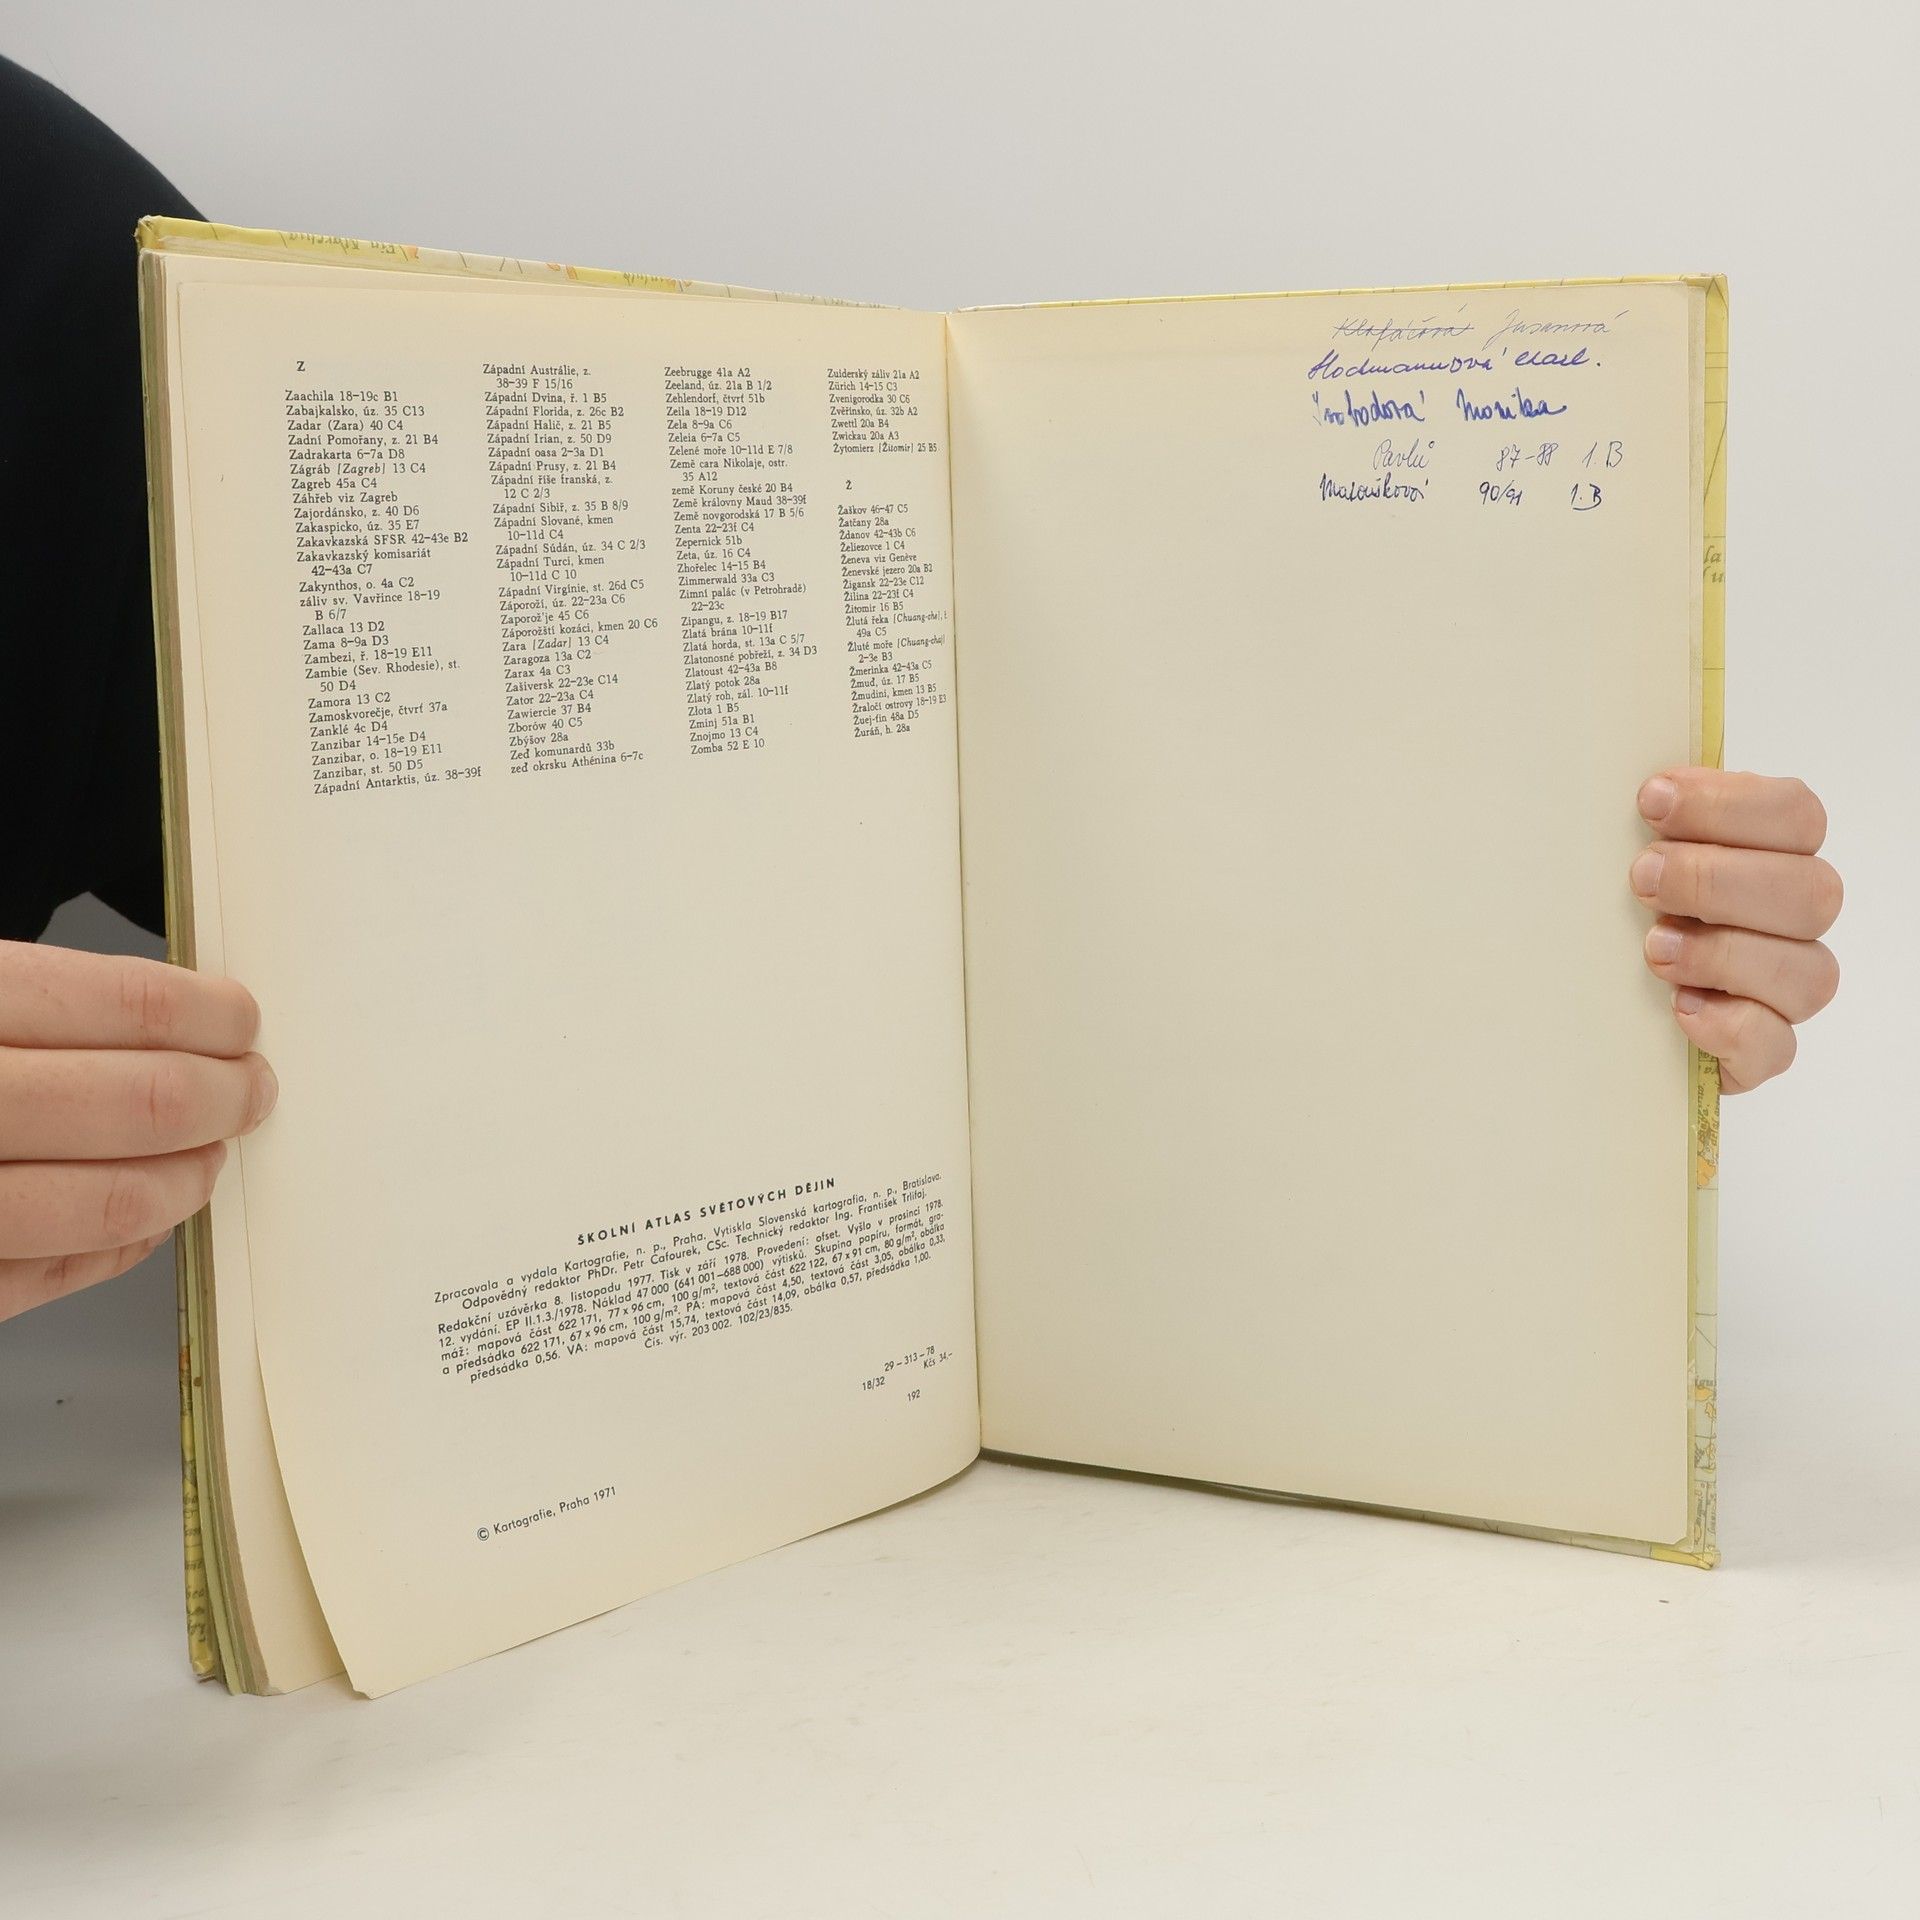 Z
Zaachila 18–19c B1
Zabajkalsko, úz. 35 C13
Zadar (Zara) 40 C4
Zadní Pomořany, z. 21 B4
Zadrakarta 6–7a D8
Zágráb [Zagreb] 13 C4
Zagreb 45a C4
Záhřeb viz Zagreb
Zajordánsko, z. 40 D6
Zakaspicko, úz. 35 E7
Zakavkazská SFSR 42–43e B2
Zakavkazský komisariát
42–43a C7
Zakynthos, o. 4a C2
záliv sv. Vavřince 18–19
B 6/7
Zallaca 13 D2
Zama 8–9a D3
Zambezi, ř. 18–19 E11
Zambie (Sev. Rhodesie), st.
50 D4
Zamora 13 C2
Zamoskvorečje, čtvrť 37a
Zanklé 4c D4
Zanzibar 14–15e D4
Zanzibar, o. 18–19 E11
Zanzibar, st. 50 D5
Západní Antarktis, úz. 38–39f
Západní Austrálie, z.
38–39 F 15/16
Západní Dvina, ř. 1 B5
Západní Florida, z. 26c B2
Západní Halič, z. 21 B5
Západní Irian, z. 50 D9
Západní oasa 2–3a D1
Západní Prusy, z. 21 B4
Západní říše franská, z.
12 C 2/3
Západní Sibiř, z. 35 B 8/9
Západní Slované, kmen
10–11d C4
Západní Súdán, úz. 34 C 2/3
Západní Turci, kmen
10–11d C 10
Západní Virgínie, st. 26d C5
Záporoží, úz. 22–23a C6
Zaporož'je 45 C6
Záporožští kozáci, kmen 20 C6
Zara [Zadar] 13 C4
Zaragoza 13a C2
Zarax 4a C3
Zašiversk 22–23e C14
Zator 22–23a C4
Zawiercie 37 B4
Zborów 40 C5
Zbýšov 28a
Zeď komunardů 33b
zeď okrsku Athénina 6–7c
Zeebrugge 41a A2
Zeeland, úz. 21a B 1/2
Zehlendorf, čtvrť 51b
Zeila 18–19 D12
Zela 8–9a C6
Zeleia 6–7a C5
Zelené moře 10–11d E 7/8
Země cara Nikolaje, ostr.
35 A12
země Koruny české 20 B4
Země královny Maud 38–39f
Země novgorodská 17 B 5/6
Zenta 22–23f C4
Zepernick 51b
Zeta, úz. 16 C4
Zhořelec 14–15 B4
Zimmerwald 33a C3
Zimní palác (v Petrohradě)
22–23c
Zipangu, z. 18–19 B17
Zlatá brána 10–11f
Zlatá horda, st. 13a C 5/7
Zlatonosné pobřeží, z. 34 D3
Zlatoust 42–43a B8
Zlatý potok 28a
Zlatý roh, zál. 10–11f
Złota 1 B5
Zminj 51a B1
Znojmo 13 C4
Zomba 52 E 10
Zuiderský záliv 21a A2
Zürich 14–15 C3
Zvenigorodka 30 C6
Zvěřinsko, úz. 32b A2
Zwettl 20a B4
Zwickau 20a A3
Żytomierz [Žitomir] 25 B5
Ž
Žaškov 46–47 C5
Žatčany 28a
Ždanov 42–43b C6
Želiezovce 1 C4
Ženeva viz Genève
Ženevské jezero 20a B2
Žigansk 22–23e C12
Žilina 22–23f C4
Žitomir 16 B5
Žlutá řeka [Chuang-che],
49a C5
Žluté moře [Chuang-chaj]
2–3e B3
Žmerinka 42–43a C5
Žmuď, úz. 17 B5
Žmudini, kmen 13 B5
Žraločí ostrovy 18–19 E3
Žuej-fin 48a D5
Žuráň, h. 28a
ŠKOLNÍ ATLAS SVĚTOVÝCH DĚJIN
Zpracovala a vydala Kartografie, n. p., Praha. Vytiskla Slovenská kartografia, n. p., Bratislava.
Odpovědný redaktor PhDr. Petr Cafourek, CSc. Technický redaktor Ing. František Trlifaj.
Redakční uzávěrka 8. listopadu 1977. Tisk v září 1978. Provedení: ofset. Vyšlo v prosinci 1978.
12. vydání. EP II.1.3./1978. Náklad 47 000 (641 001–688 000) výtisků. Skupina papíru, formát, gra-
máž: mapová část 622 171, 77 x 96 cm, 100 g/m², textová část 622 122, 67 x 91 cm, 80 g/m², obálka
a předsádka 622 171, 67 x 96 cm, 100 g/m². PA: mapová část 4,50, textová část 3,05, obálka 0,33,
předsádka 0,56. VA: mapová část 15,74, textová část 14,09, obálka 0,57, předsádka 1,00.
Čís. výr. 203 002. 102/23/835.
29 – 313 – 78
18/32 Kčs 34,–
192
© Kartografie, Praha 1971
Klofáčová
Svobodová Monika
Pavlů 87–88 1.B
Matoušková 90/91 1.B